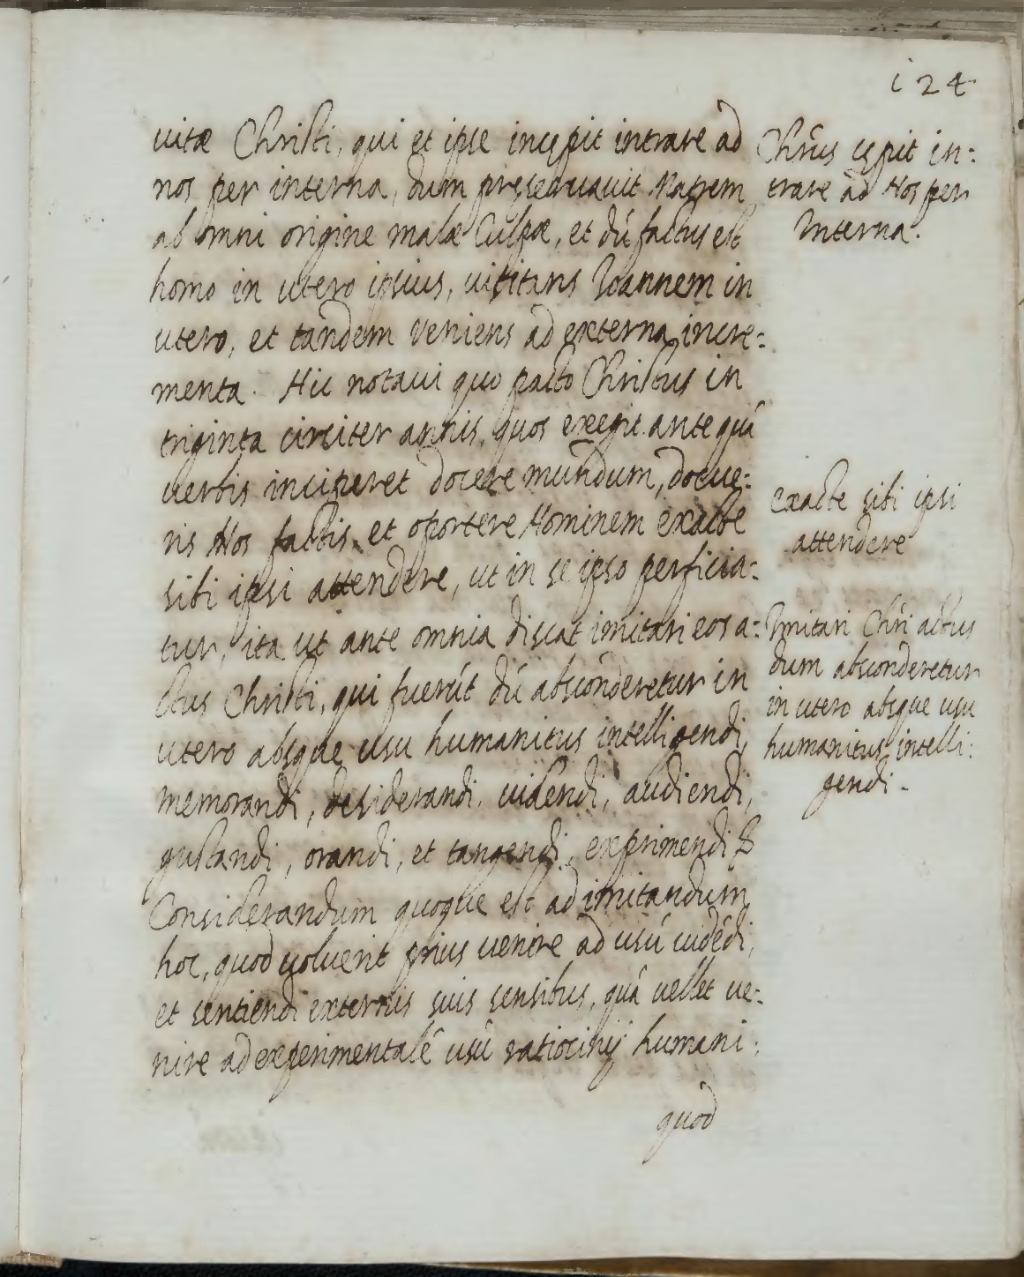 124
vitæ Christi, qui et ipse incępit intrare ad
nos per interna, dum pręseruauit Matrem
ab omni origine malæ Culpæ, et dũ factus est
homo in utero ipsius, uisitans Joannem in
utero, et tandem veniens ad externa incre:
menta. Hic notaui quo pacto Christus in
triginta circiter annis, quos exegit antequã
uerbis inciperet docere mundum, docue:
ris Nos factis, et oportere Hominem exacte
sibi ipsi attendere, ut in se ipso perficia:
tur, ita ut ante omnia discat imitari eos a:
ctus Christi, qui fuerũt dũ abscõnderetur in
utero absque usu humanitus intelligendi,
memorandi, desiderandi, uidendi, audiendi,
gustandi, orandi, et tangendi, exprimendi &
Considerandum quoque est ad imitandum
hoc, quod uoluerit prius uenire ad usũ uidẽdi,
et sentiendi externis suis sensibus, quã uellet ue:
nire ad experimentalẽ usũ ratiocinij humani:
quod
Chrũs cępit in:
trare ad Nos per
Interna.
exacte sibi ipsi
attendere
Imitari Chrĩ actus
dum absconderetur
in utero absque usu
humanitus intelli:
gendi.